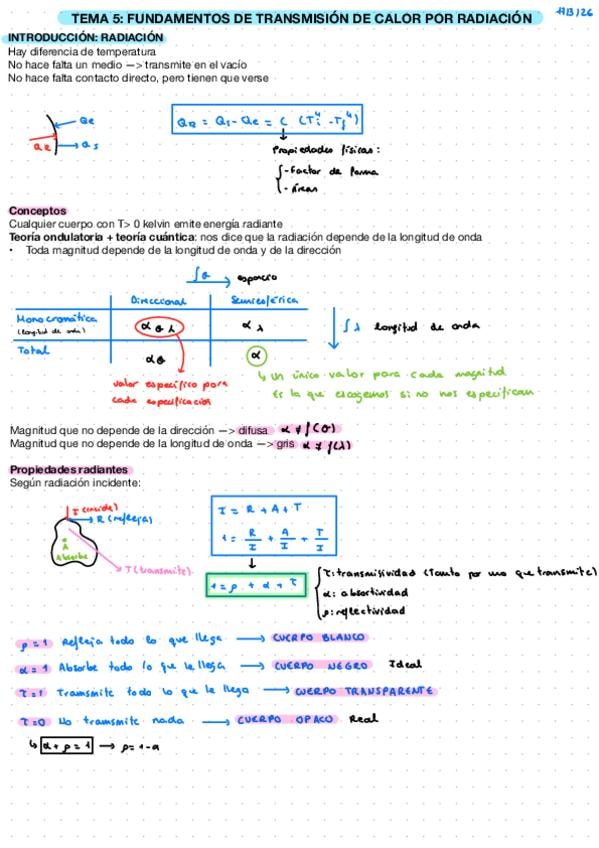 TEMA 5: FUNDAMENTOS DE TRANSMISIÓN DE CALOR POR RADIACIÓN
INTRODUCCIÓN: RADIACIÓN
Hay diferencia de temperatura
No hace falta un medio —> transmite en el vacío
No hace falta contacto directo, pero tienen que verse
Qe
QR
Qs
QR = Qs - Qe = C (Ti⁴ - Tj⁴)
Propiedades físicas:
- Factor de forma
- Áreas
Conceptos
Cualquier cuerpo con T> 0 kelvin emite energía radiante
Teoría ondulatoria + teoría cuántica: nos dice que la radiación depende de la longitud de onda
• Toda magnitud depende de la longitud de onda y de la dirección
∫θ espacio
Direccional Semiesférica
Monocromática α θ λ α λ ∫λ longitud de onda
(longitud de onda)
Total α θ α
un único valor para cada magnitud
valor específico para
Es la que escogemos si no nos especifican
cada especificación
Magnitud que no depende de la dirección —> difusa α ≠ f(θ)
Magnitud que no depende de la longitud de onda —> gris α ≠ f(λ)
Propiedades radiantes
Según radiación incidente:
I (incide)
R (refleja)
A
Absorbe
T (transmite)
I = R + A + T
1 = R/I + A/I + T/I
1 = ρ + α + τ
τ: transmisividad (tanto por uno que transmite)
α: absortividad
ρ: reflectividad
ρ = 1 Refleja todo lo que llega → CUERPO BLANCO
α = 1 Absorbe todo lo que le llega → CUERPO NEGRO Ideal
τ = 1 Transmite todo lo que le llega → CUERPO TRANSPARENTE
τ = 0 No transmite nada → CUERPO OPACO Real
α + ρ = 1 → ρ = 1 - α